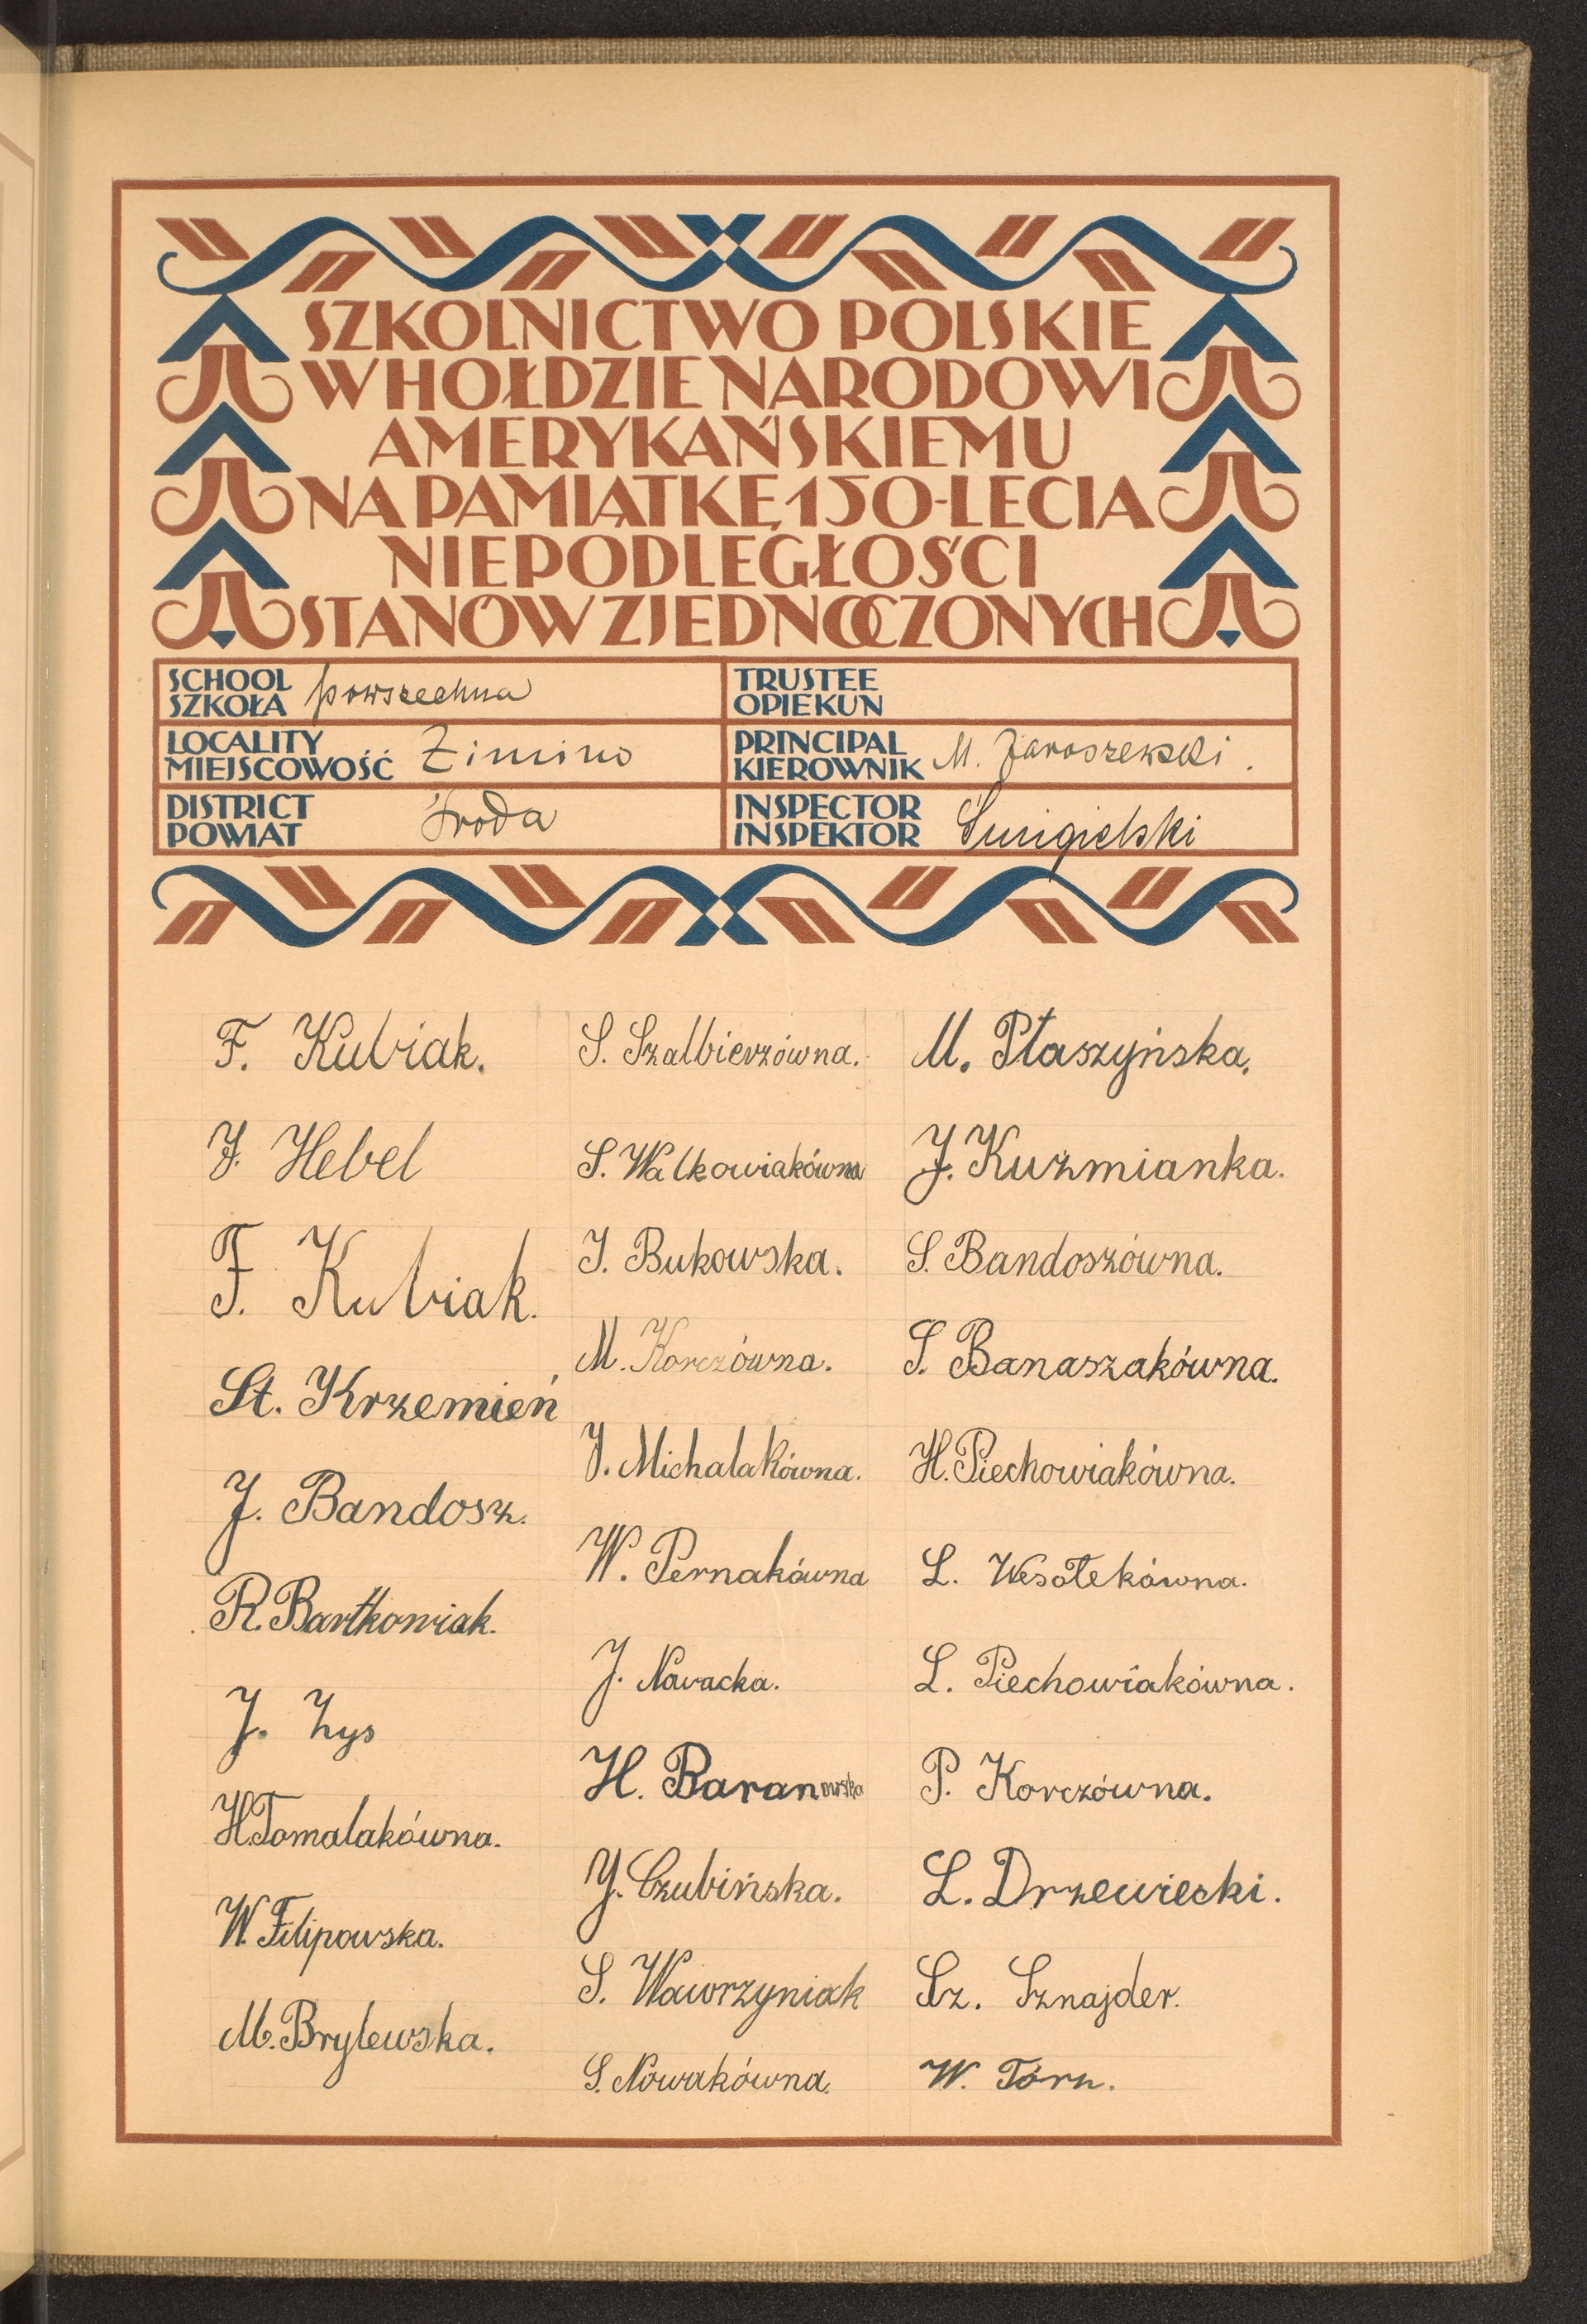 SZKOLNICTWO POLSKIE
W HOŁDZIE NARODOWI
AMERYKAŃSKIEMU
NA PAMIĄTKĘ 150-LECIA
NIEPODLEGŁOŚCI
STANÓW ZJEDNOCZONYCH
SCHOOL
SZKOŁA powszechna
TRUSTEE
OPIEKUN
LOCALITY
MIEJSCOWOŚĆ Zimino
PRINCIPAL
KIEROWNIK M. Jaroszewski.
DISTRICT
POWIAT Środa
INSPECTOR
INSPEKTOR Śmigielski
F. Kubiak.
J. Hebel
F. Kubiak.
St. Krzemień
J. Bandosz.
R. Bartkowiak.
J. Łys
H. Tomalakówna.
W. Filipowska.
M. Brylewska.
S. Szalbierzówna.
S. Walkowiakówna
J. Bukowska.
M. Korczówna.
J. Michalakówna.
W. Pernakówna
J. Nowacka.
H. Baranowska
J. Czubińska.
S. Wawrzyniak
S. Nowakówna.
M. Ptaszyńska.
J. Kuźmianka.
S. Bandoszówna.
S. Banaszakówna.
H. Piechowiakówna.
L. Wesołekówna.
L. Piechowiakówna.
P. Korczówna.
L. Drzewiecki.
Sz. Sznajder.
W. Tórz.